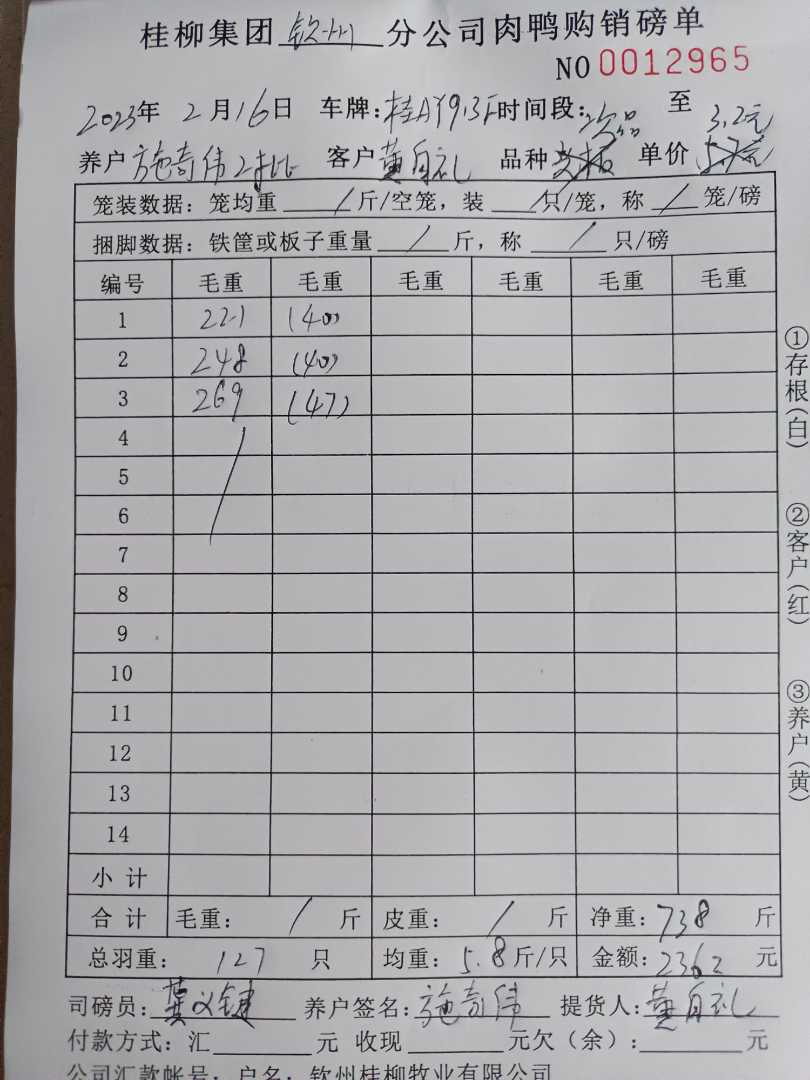 桂柳集团 钦州 分公司肉鸭购销磅单
NO 0012965
2023年 2月16日 车牌: 时间段:次品 至 3.2元
养户 施奇伟2批 客户 黄自礼 品种 单价
笼装数据: 笼均重 / 斤/空笼, 装 /只/笼, 称 / 笼/磅
捆脚数据: 铁筐或板子重量 / 斤, 称 / 只/磅
编号 毛重 毛重 毛重 毛重 毛重 毛重
1 221 (40)
2 248 (40)
3 269 (47)
4
5
6
7
8
9
10
11
12
13
14
小 计
合 计 毛重: / 斤 皮重: / 斤 净重: 738 斤
总羽重: 127 只 均重: 5.8斤/只 金额: 2362 元
司磅员: 龚义键 养户签名: 施奇伟 提货人: 黄自礼
付款方式: 汇 元 收现 元欠(余): 元
公司汇款帐号: 户名: 钦州桂柳牧业有限公司
①存根(白)
②客户(红)
③养户(黄)